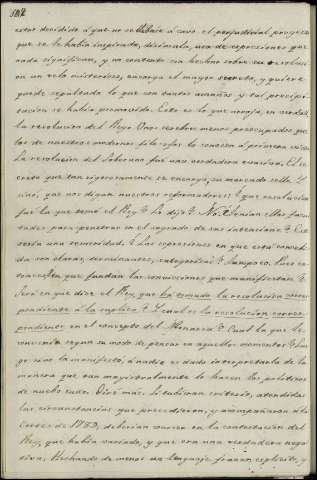 estar decidido á que no se llevase á cavo el perjudicial proyecto
que se le habia inspirado, disimula, usa de expresiones que
nada significan, y no contento con hecharse sobre su resolucion
un velo misterioso, encarga el mayor secreto, y quiere
quede sepultado lo que con tantas amaños y tal precipi-
tacion se habia promovido. Esto es lo que arroja, en verdad
la resolucion del Rey. Unos cerebros menos preocupados que
los de nuestros modernos filosofos la conocen á primera vista
La resolucion del Soberano fué una verdadera evasiva. El se-
creto que tan rigurosamente se encarga, su marcado sello. Y
sinó, que nos digan nuestros reformadores ? que resolucion
fué la que tomó el Rey ? La dijo ? No. ? Tenian ellos facul-
tades para penetrar en el sagrado de sus intenciones ?
seria una temeridad. ? Las expresiones en que está concebi-
da son claras, terminantes, categoricas ? Tampoco. Pues en-
tonces ¿en que fundan las convicciones que manifiestan ?
Será en que dice el Rey, que ha tomado la resolucion corres-
pondiente á la suplica ? Y cual es la resolucion corres-
pondiente en el concepto del Monarca ? Cual la que le
convenia segun su modo de pensar en aquellos momentos ? Lue-
go sino la manifestó, á nadie es dado interpretarla de la
manera que tan magistralmente lo hacen los politicos
de nuevo cuño. Digo mas: si tubieran criterio, atendidas
las circunstancias que precedieron, y acompañaron á las
Cortes de 1789, deberian
Rey, que habia variado, y que era una verdadera nega-
tiva. Hechando de menos un lenguaje franco, explicito, y